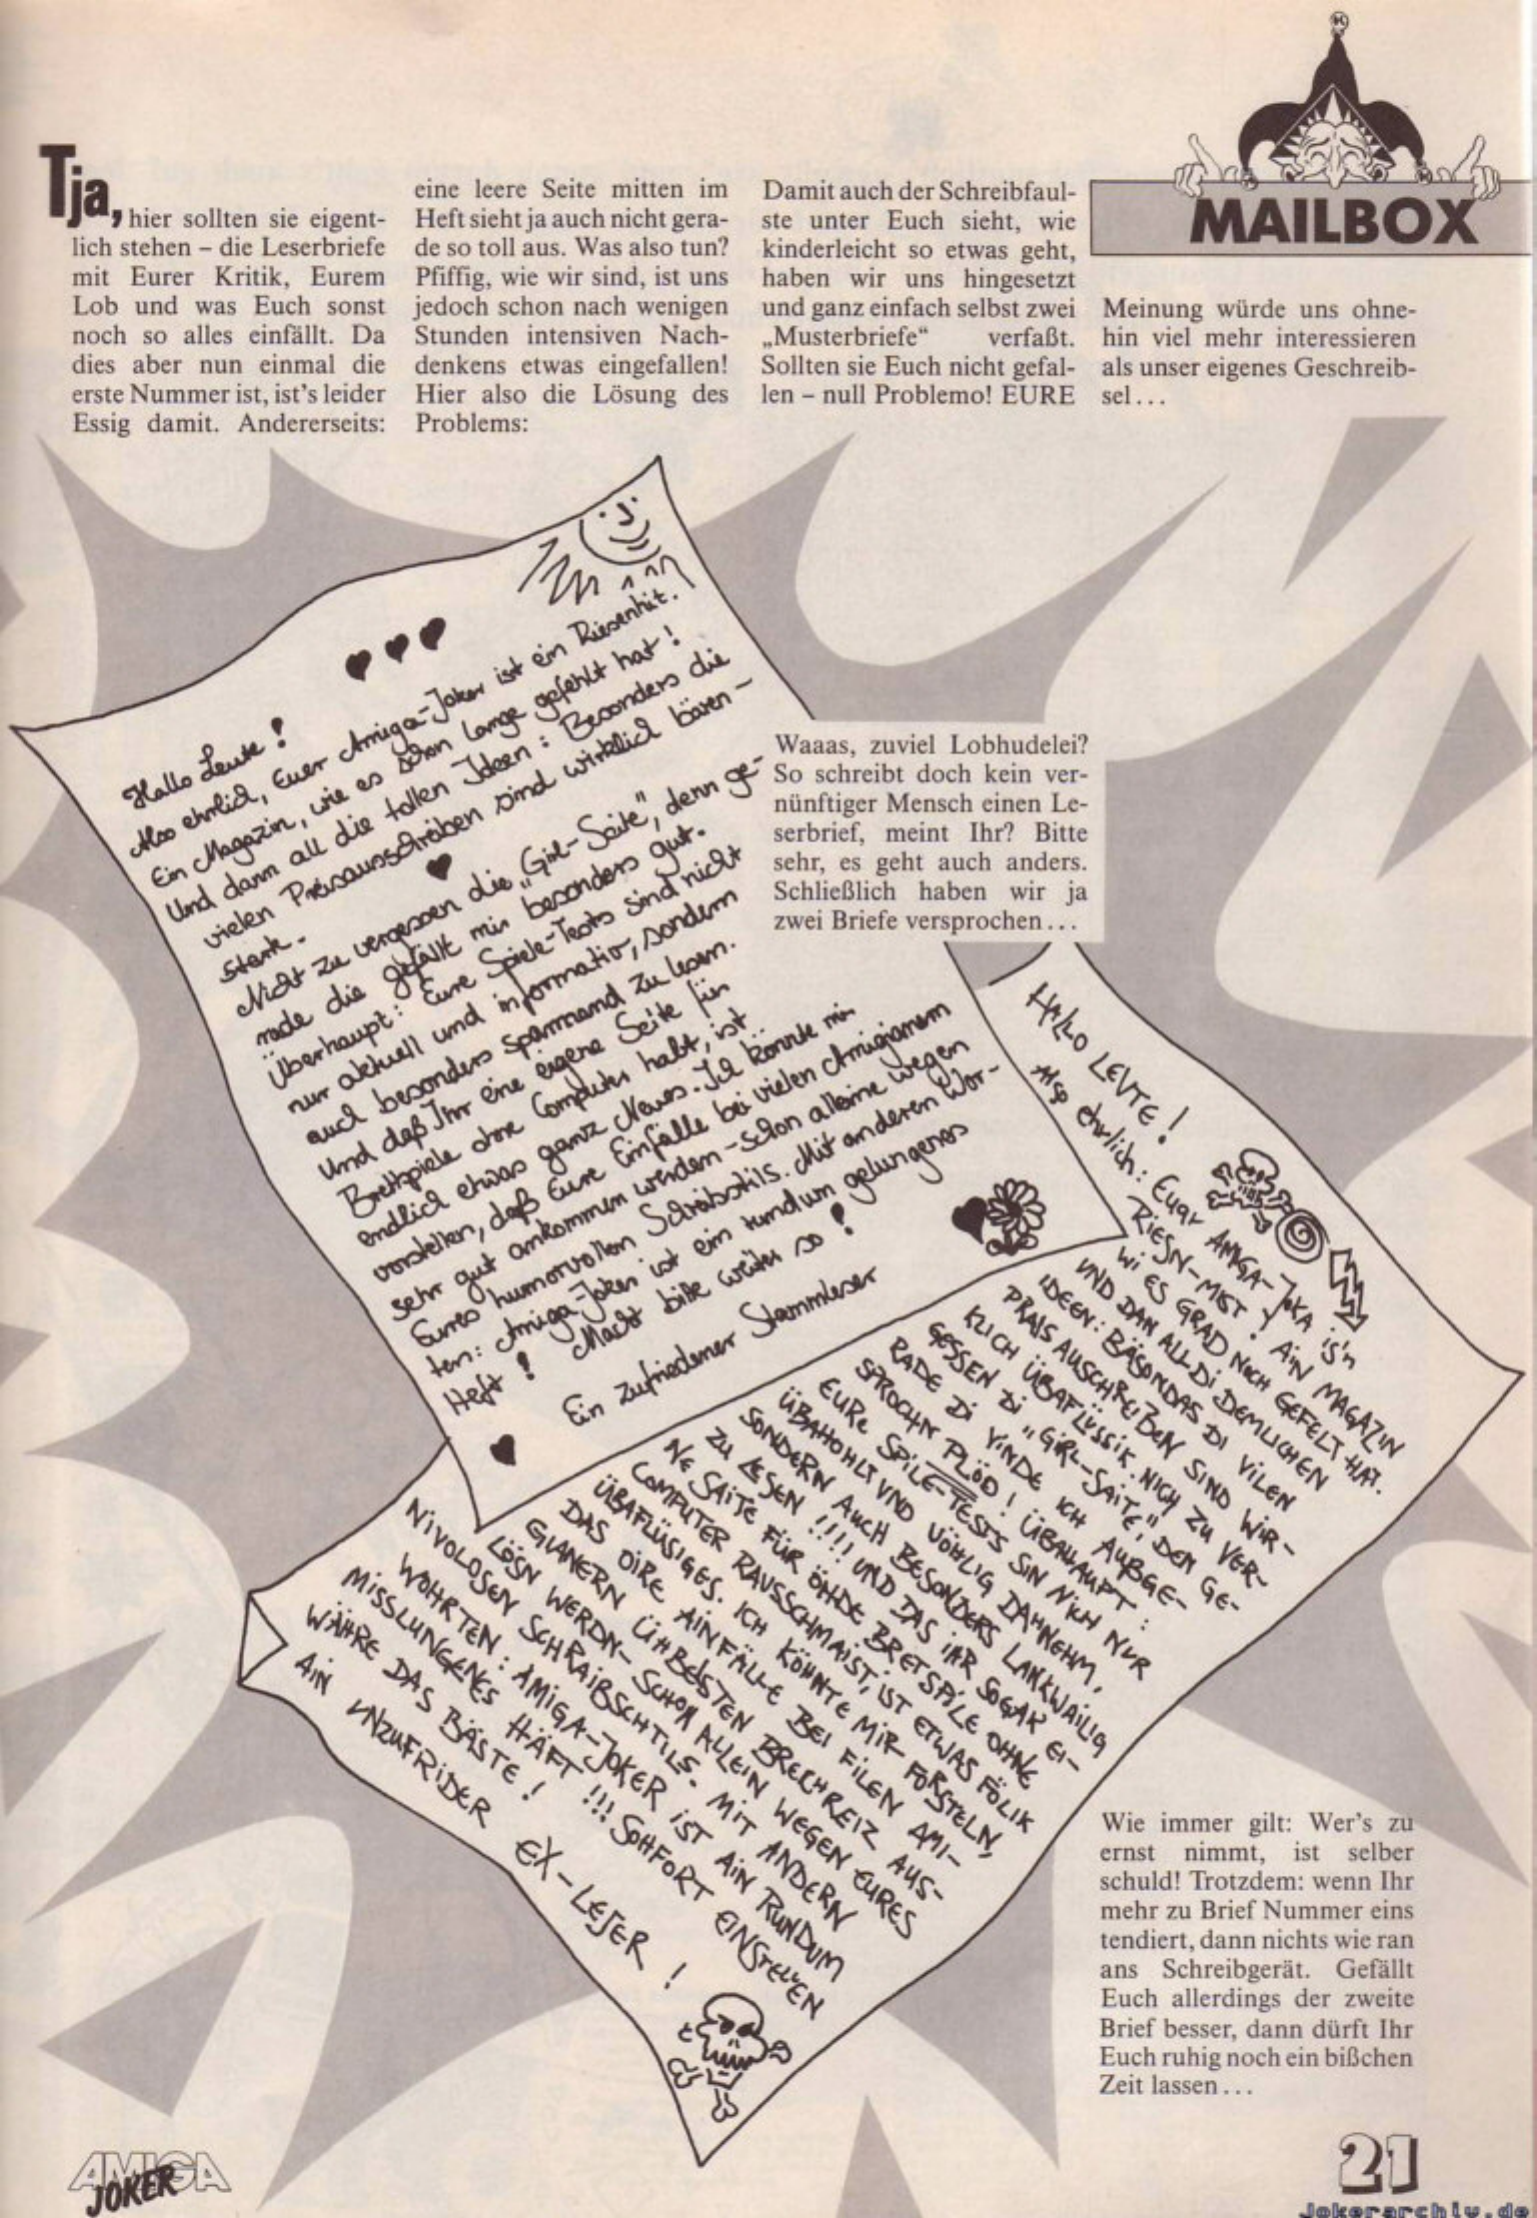 MAILBOX
Tja, hier sollten sie eigent-
lich stehen – die Leserbriefe
mit Eurer Kritik, Eurem
Lob und was Euch sonst
noch so alles einfällt. Da
dies aber nun einmal die
erste Nummer ist, ist's leider
Essig damit. Andererseits:
eine leere Seite mitten im
Heft sieht ja auch nicht gera-
de so toll aus. Was also tun?
Pfiffig, wie wir sind, ist uns
jedoch schon nach wenigen
Stunden intensiven Nach-
denkens etwas eingefallen!
Hier also die Lösung des
Problems:
Damit auch der Schreibfaul-
ste unter Euch sieht, wie
kinderleicht so etwas geht,
haben wir uns hingesetzt
und ganz einfach selbst zwei
„Musterbriefe“ verfaßt.
Sollten sie Euch nicht gefal-
len – null Problemo! EURE
Meinung würde uns ohne-
hin viel mehr interessieren
als unser eigenes Geschreib-
sel...
Hallo Leute!
Also ehrlich, Euer Amiga-Joker ist ein Riesenhit.
Ein Magazin, wie es schon lange gefehlt hat!
Und dann all die tollen Ideen: Besonders die
vielen Preisausschreiben sind wirklich bären-
stark.
Nicht zu vergessen die „Girl-Seite“, denn ge-
rade die gefällt mir besonders gut.
Überhaupt: Eure Spiele-Tests sind nicht
nur aktuell und informativ, sondern
auch besonders spannend zu lesen.
Und daß Ihr eine eigene Seite für
Brettspiele ohne Computer habt, ist
endlich etwas ganz Neues. Ich könnte mir
vorstellen, daß Eure Einfälle bei vielen Amigianern
sehr gut ankommen werden – schon alleine wegen
Eures humorvollen Schreibstils. Mit anderen Wor-
ten: Amiga-Joker ist ein rundum gelungenes
Heft! Macht bitte weiter so!
Ein zufriedener Stammleser
Waaas, zuviel Lobhudelei?
So schreibt doch kein ver-
nünftiger Mensch einen Le-
serbrief, meint Ihr? Bitte
sehr, es geht auch anders.
Schließlich haben wir ja
zwei Briefe versprochen...
HALLO LEUTE!
Also Ehrlich: EUQR AMIGA-JOKA iS'n
RiESN-MIST! AiN MAGAZiN
Wi ES GRAD NOCH GEFELT HAT.
UND DAN ALL Di DEMLICHEN
IDEEN: BÄSONDAS Di ViLEN
PRAIS AUSCHREIBEN SIND WiR-
KLICH ÜBAFLÜSSIK. NICH ZU VER-
GESSEN Di „GiRL-SAiTE“, DEN GE-
RADE Di ViNDE ICH AUßGE-
SPROCHN PLÖD! ÜBAHAUPT:
EURE SPiLE-TESTS SiN NiCH NUR
ÜBAHOHLT UND VÖHLIG DAHNEHM,
SONDERN AUCH BESONDERS LANKWAiLiG
ZU LESEN!!!! UND DAS iHR SOGAR Ei-
NE SAiTE FÜR ÖHDE BRETSPiLE OHNE
COMPUTER RAUSSCHMAiST, iST ETWAS FÖLiK
ÜBAFLÜSIGES. ICH KÖHNTE MiR FORSTELN,
DAS OiRE AiNFÄLLE BEi FiLEN AMi-
GIANERN ÜHBELSTEN BRECHREiZ AUS-
LÖSN WERDN – SCHON ALLEiN WEGEN EURES
NiVOLOSEN SCHRAiBSCHTiLS. MiT ANDERN
WOHRTEN: AMiGA-JOKER iST AiN RUNDUM
MiSSLUNGENES HÄFT!!! SOHFORT EiNSTELLEN
WÄHRE DAS BÄSTE!
AiN UNZUFRiDER EX-LESER!
Wie immer gilt: Wer's zu
ernst nimmt, ist selber
schuld! Trotzdem: wenn Ihr
mehr zu Brief Nummer eins
tendiert, dann nichts wie ran
ans Schreibgerät. Gefällt
Euch allerdings der zweite
Brief besser, dann dürft Ihr
Euch ruhig noch ein bißchen
Zeit lassen...
AMIGA
JOKER
21
Jokerarchiv.de